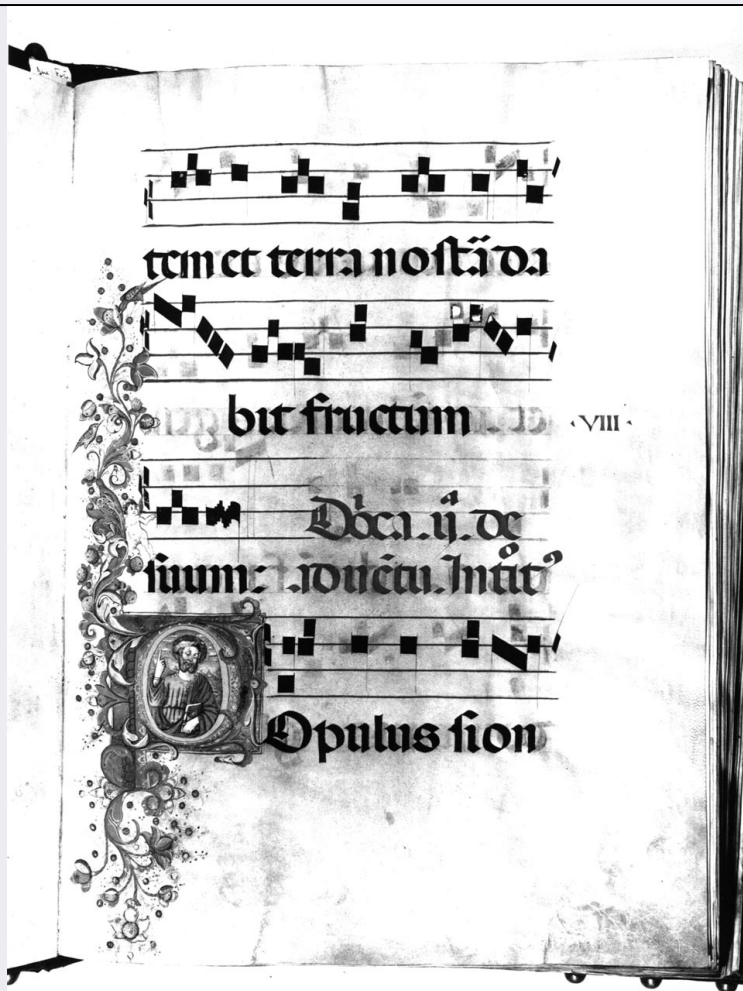 tem et terra nostã da
bit fructum
·VIII·
Dõca .ij. de
suum: .aduẽtu. Intt̃
Opulus sion